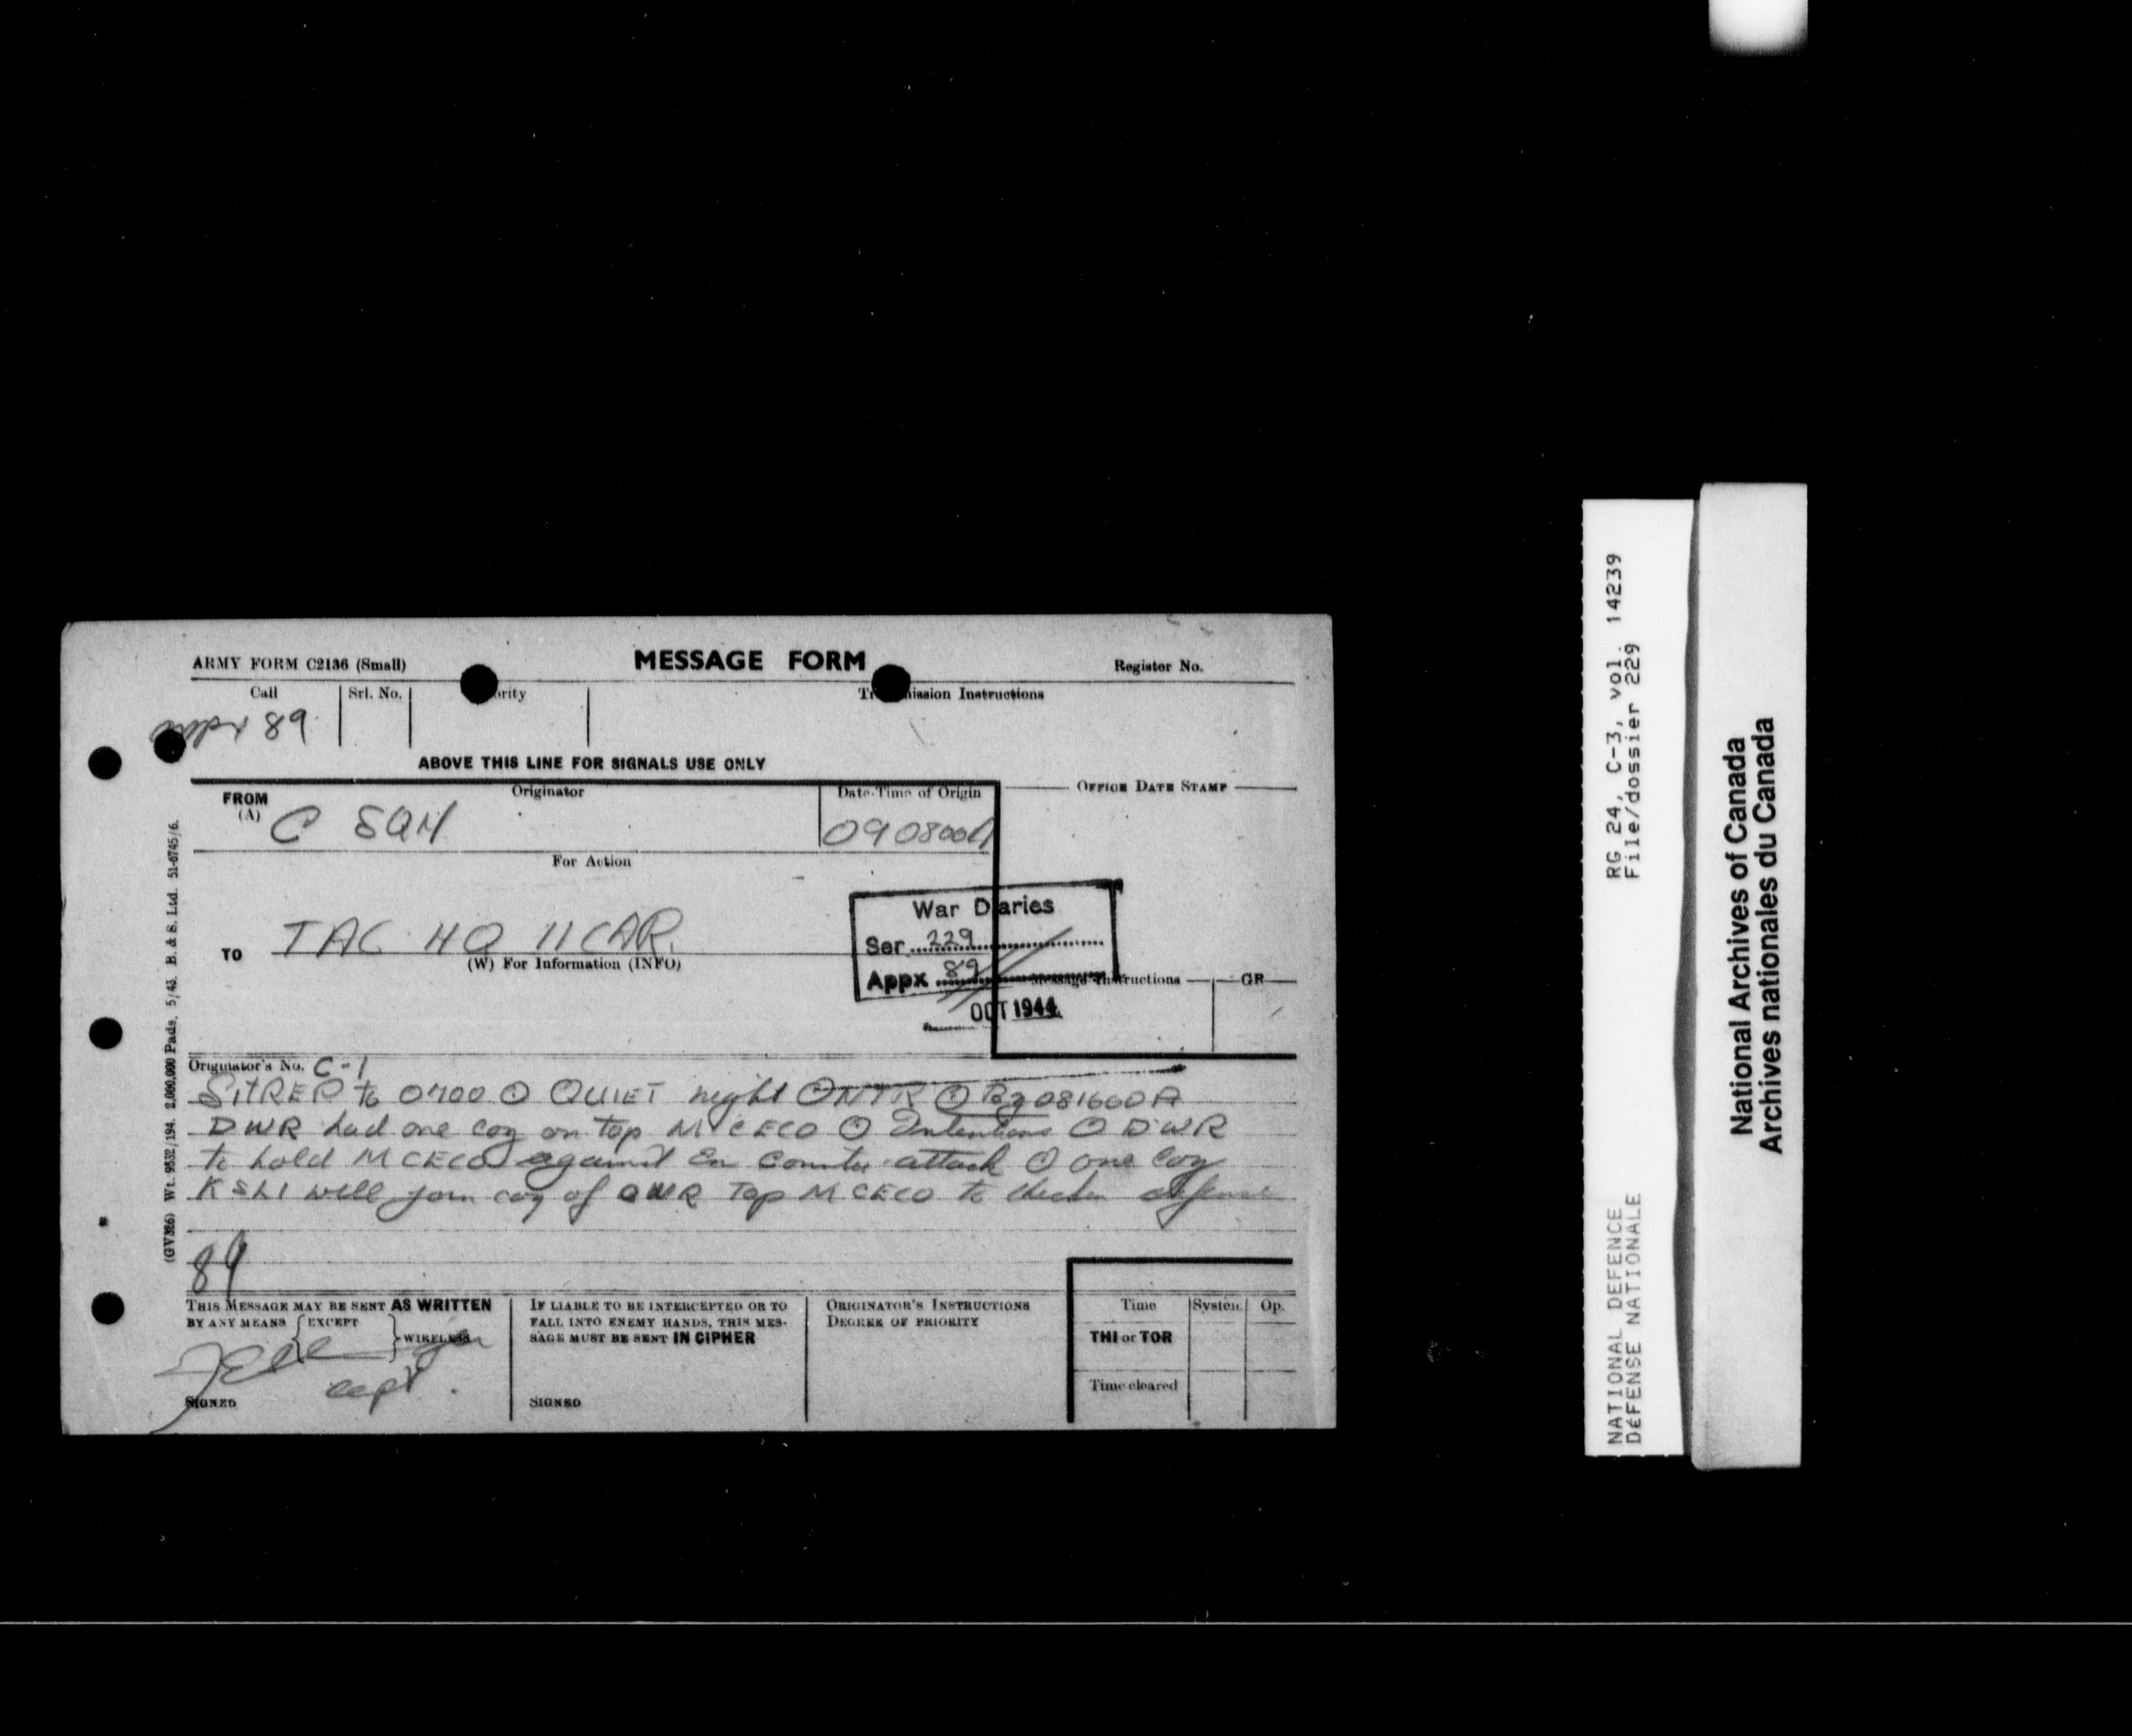 ARMY FORM C2136 (Small)
MESSAGE FORM
Register No.
Call
Srl. No.
Transmission Instructions
Appx 89
ABOVE THIS LINE FOR SIGNALS USE ONLY
FROM
(A)
Originator
Date-Time of Origin
OFFICE DATE STAMP
C SQN
090800A
For Action
TO
TAC HQ 11 CAR
(W) For Information (INFO)
War Diaries
Ser 229
Appx 89
OCT 1944
Message Instructions
GR
Originator's No. C-1
SITREP to 0700 ⊙ QUIET night ⊙ NTR ⊙ By 081600A
DWR had one coy on top M CECO ⊙ Intentions ⊙ DWR
to hold M CECO against En counter attack ⊙ one coy
KSLI will join coy of DWR Top M CECO to thicken defense
89
THIS MESSAGE MAY BE SENT AS WRITTEN
BY ANY MEANS EXCEPT WIRELESS
capt.
SIGNED
IF LIABLE TO BE INTERCEPTED OR TO
FALL INTO ENEMY HANDS, THIS MES-
SAGE MUST BE SENT IN CIPHER
SIGNED
ORIGINATOR'S INSTRUCTIONS
DEGREE OF PRIORITY
Time
System
Op.
THI or TOR
Time cleared
(GV386) Wt. 9532/194. 2,000,000 Pads. 5/43. B. & S. Ltd. 51-6745/6.
RG 24, C-3, vol. 14239
File/dossier 229
NATIONAL DEFENCE
DéFENSE NATIONALE
National Archives of Canada
Archives nationales du Canada